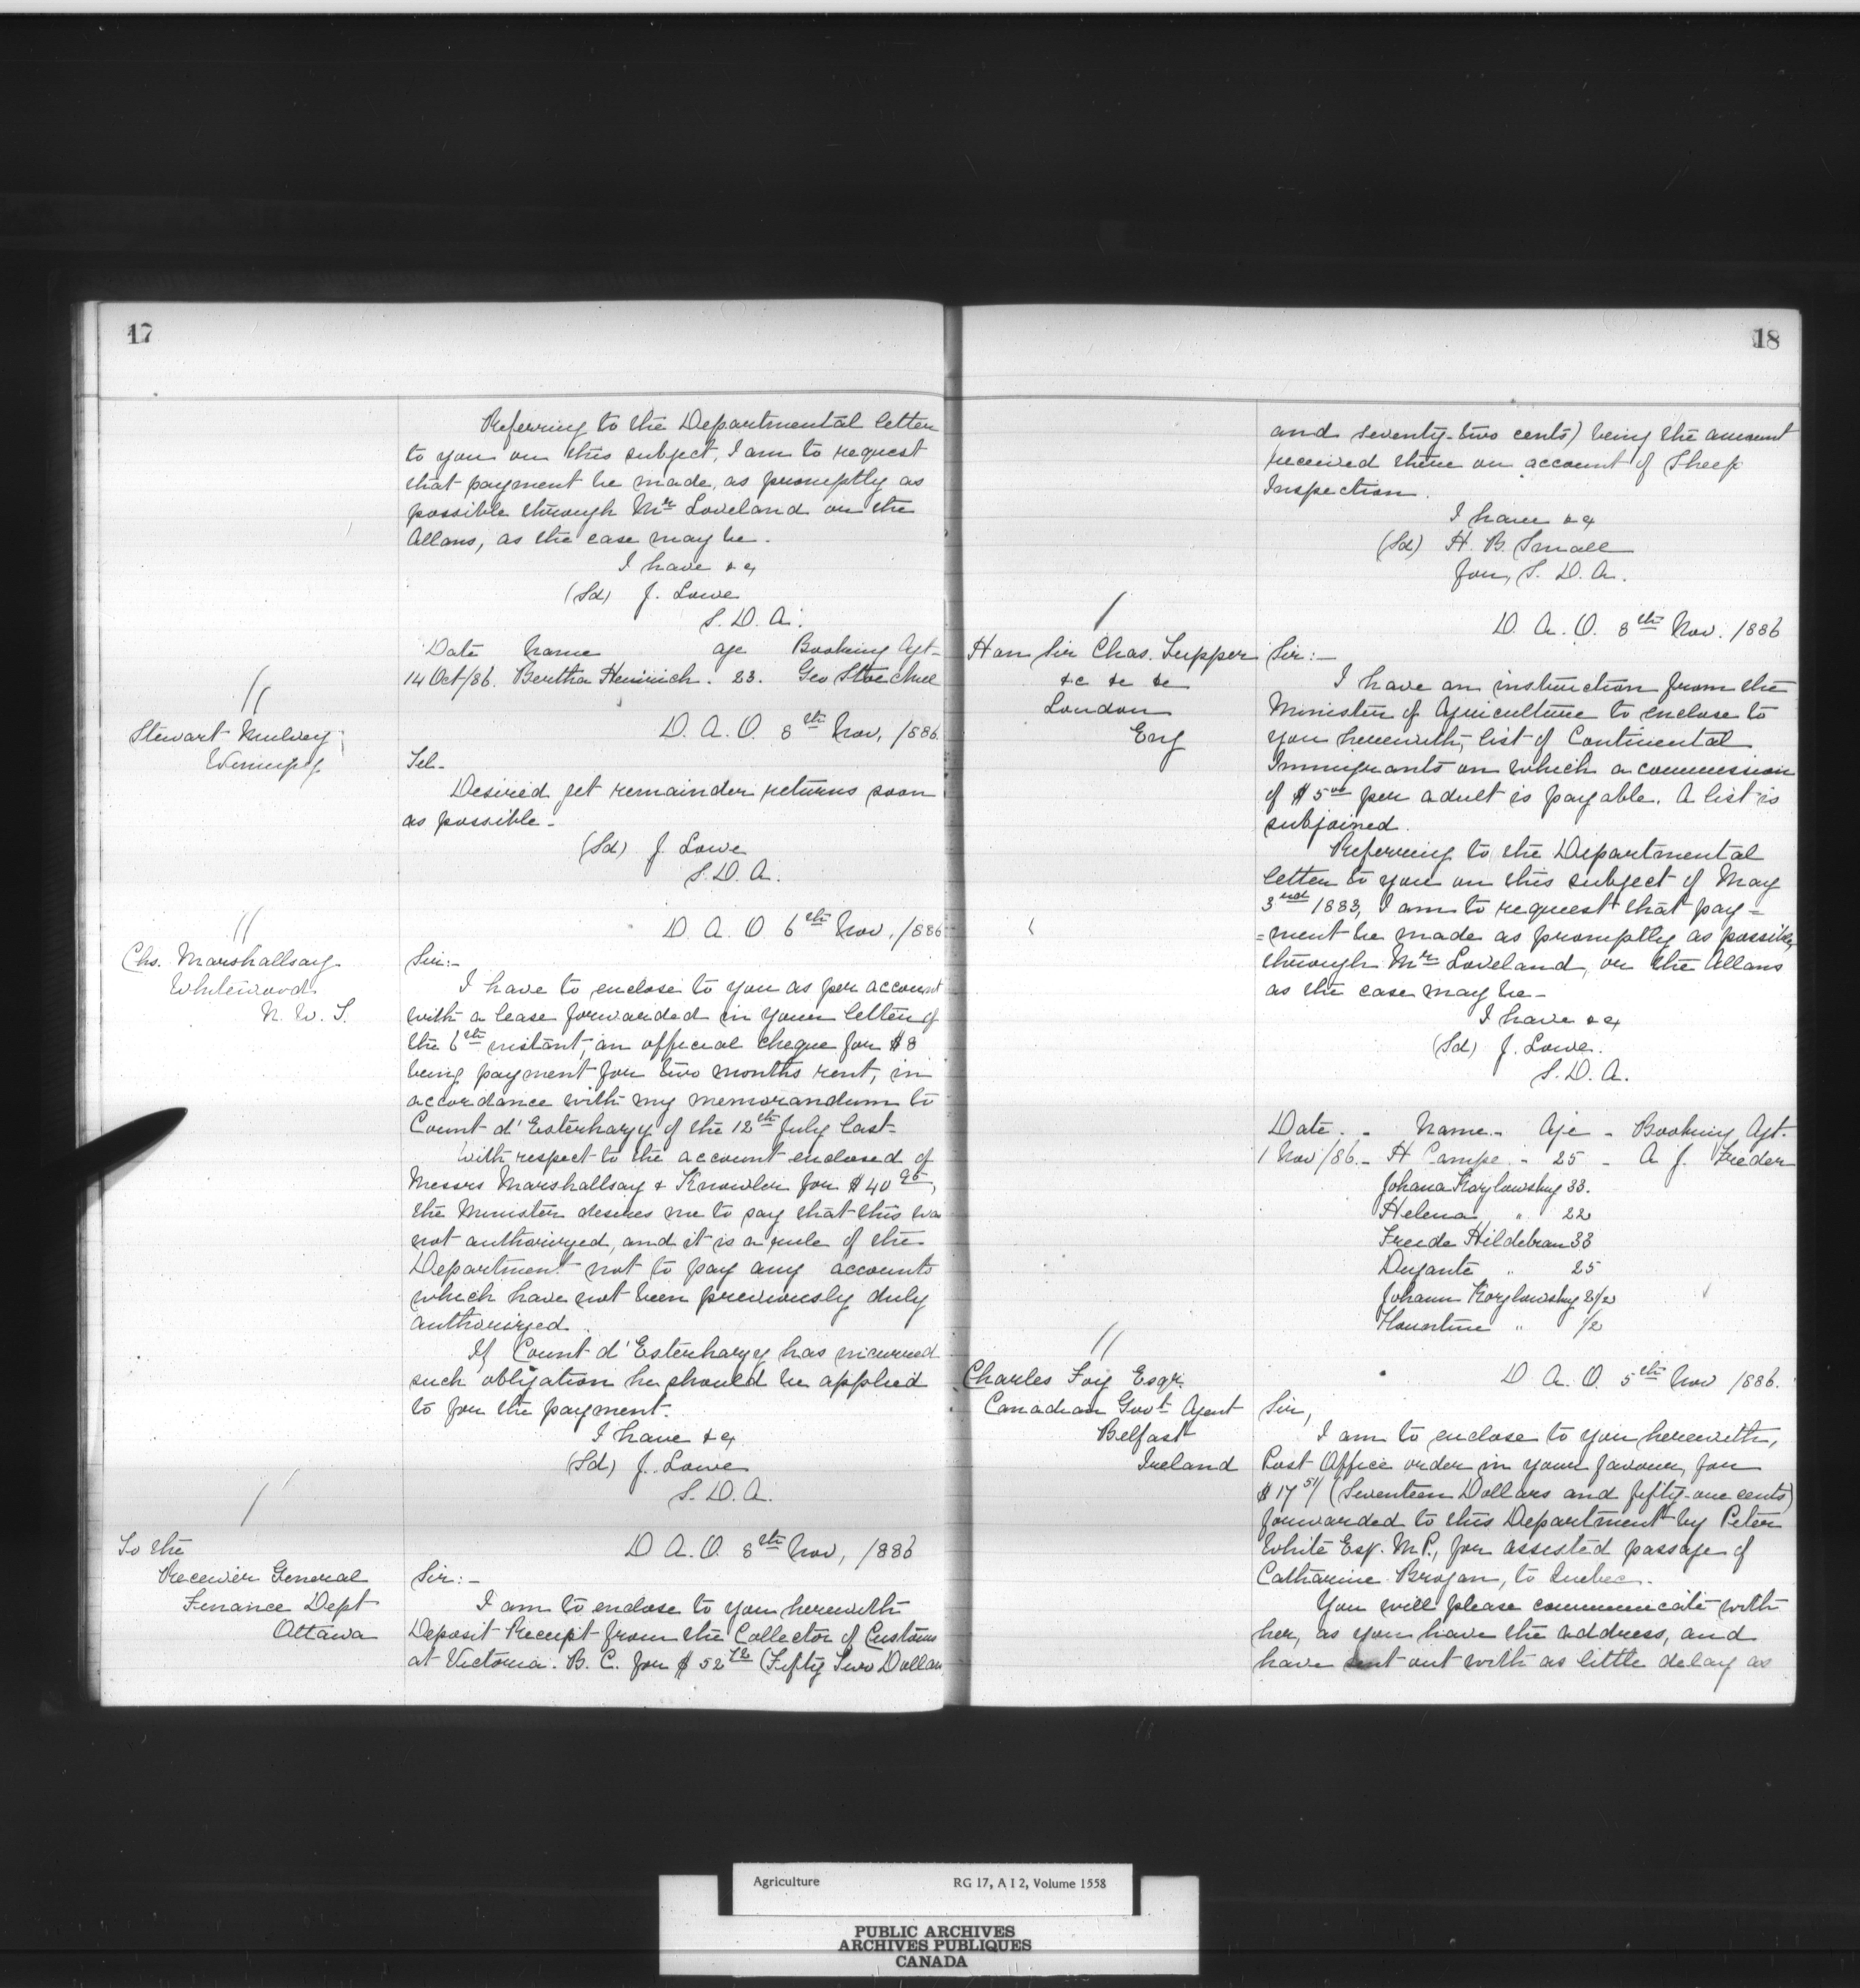 17
Referring to the Departmental letter
to you on this subject, I am to request
that payment be made, as promptly as
possible through Mr Loveland or the
Allans, as the case may be.
I have &c
(Sd) J. Lowe
S. D. A.
Date Name age Booking Agt-
14 Oct/86. Bertha Heinrich. 23. Geo
//
D. A. O. 8th Nov, /886
Stewart Mulvey
Winnipeg
Tel-
Desired get remainder returns soon
as possible-
(Sd) J. Lowe
S. D. A.
//
D. A. O 6th Nov, /886
Chs. Marshallsay
Whitewood
N. W. T.
Sir:-
I have to enclose to you as per account
with a lease forwarded in your letter of
the 6th instant, an official cheque for $8
being payment for two months rent, in
accordance with my memorandum to
Count d'Esterhazy of the 12th July last-
With respect to the account enclosed of
Messrs Marshallsay & Knowler for $40 95,
the Minister desires me to say that this was
not authorized, and it is a rule of the
Department not to pay any accounts
which have not been previously duly
authorized.
If Count d'Esterhazy has incurred
such obligation he should be applied
to for the payment.
I have &c
(Sd) J. Lowe
S. D. A.
/
D A. O. 8th Nov, /886
To the
Receiver General
Finance Dept
Ottawa
Sir:-
I am to enclose to you herewith
Deposit Receipt from the Collector of Customs
at Victoria. B. C. for $52 72 (Fifty Two Dollars
18
and seventy-two cents) being the amount
received there on account of Sheep
Inspection.
I have &c
(Sd) H. B. Small
for, S. D. A.
/
D. A. O. 8th Nov. /886
Hon Sir Chas. Tupper
&c &c &c
London
Eng
Sir:-
I have an instruction from the
Minister of Agriculture to enclose to
you herewith, list of Continental
Immigrants on which a commission
of $5 00 per adult is payable. A list is
subjoined.
Referring to the Departmental
letter to you on this subject of May
3rd 1883, I am to request that pay=
=ment be made as promptly as possible,
through Mr Loveland, or the Allans
as the case may be-
I have &c
(Sd) J. Lowe.
S. D. A.
Date. - Name - Age - Booking Agt.
1 Nov/86.- H Campe. - 25 - A J. Freder
Johana Kozlowsky 33.
Helena " 22
Freide Hildebran 33
" 25
Johann Kozlowsky 2/2
" 1/2
//
D A. O. 5th Nov /886.
Charles Foy Esqr.
Canadian Govt. Agent
Belfast
Ireland
Sir,
I am to enclose to you herewith,
Post Office order in your favour, for
$17 51/ (Seventeen Dollars and fifty-one cents)
forwarded to this Department by Peter
White Esq. M.P., for assisted passage of
Catharine Brogan, to Quebec.
You will please communicate with
her, as you have the address, and
have sent out with as little delay as
Agriculture RG 17, A I 2, Volume 1558
PUBLIC ARCHIVES
ARCHIVES PUBLIQUES
CANADA